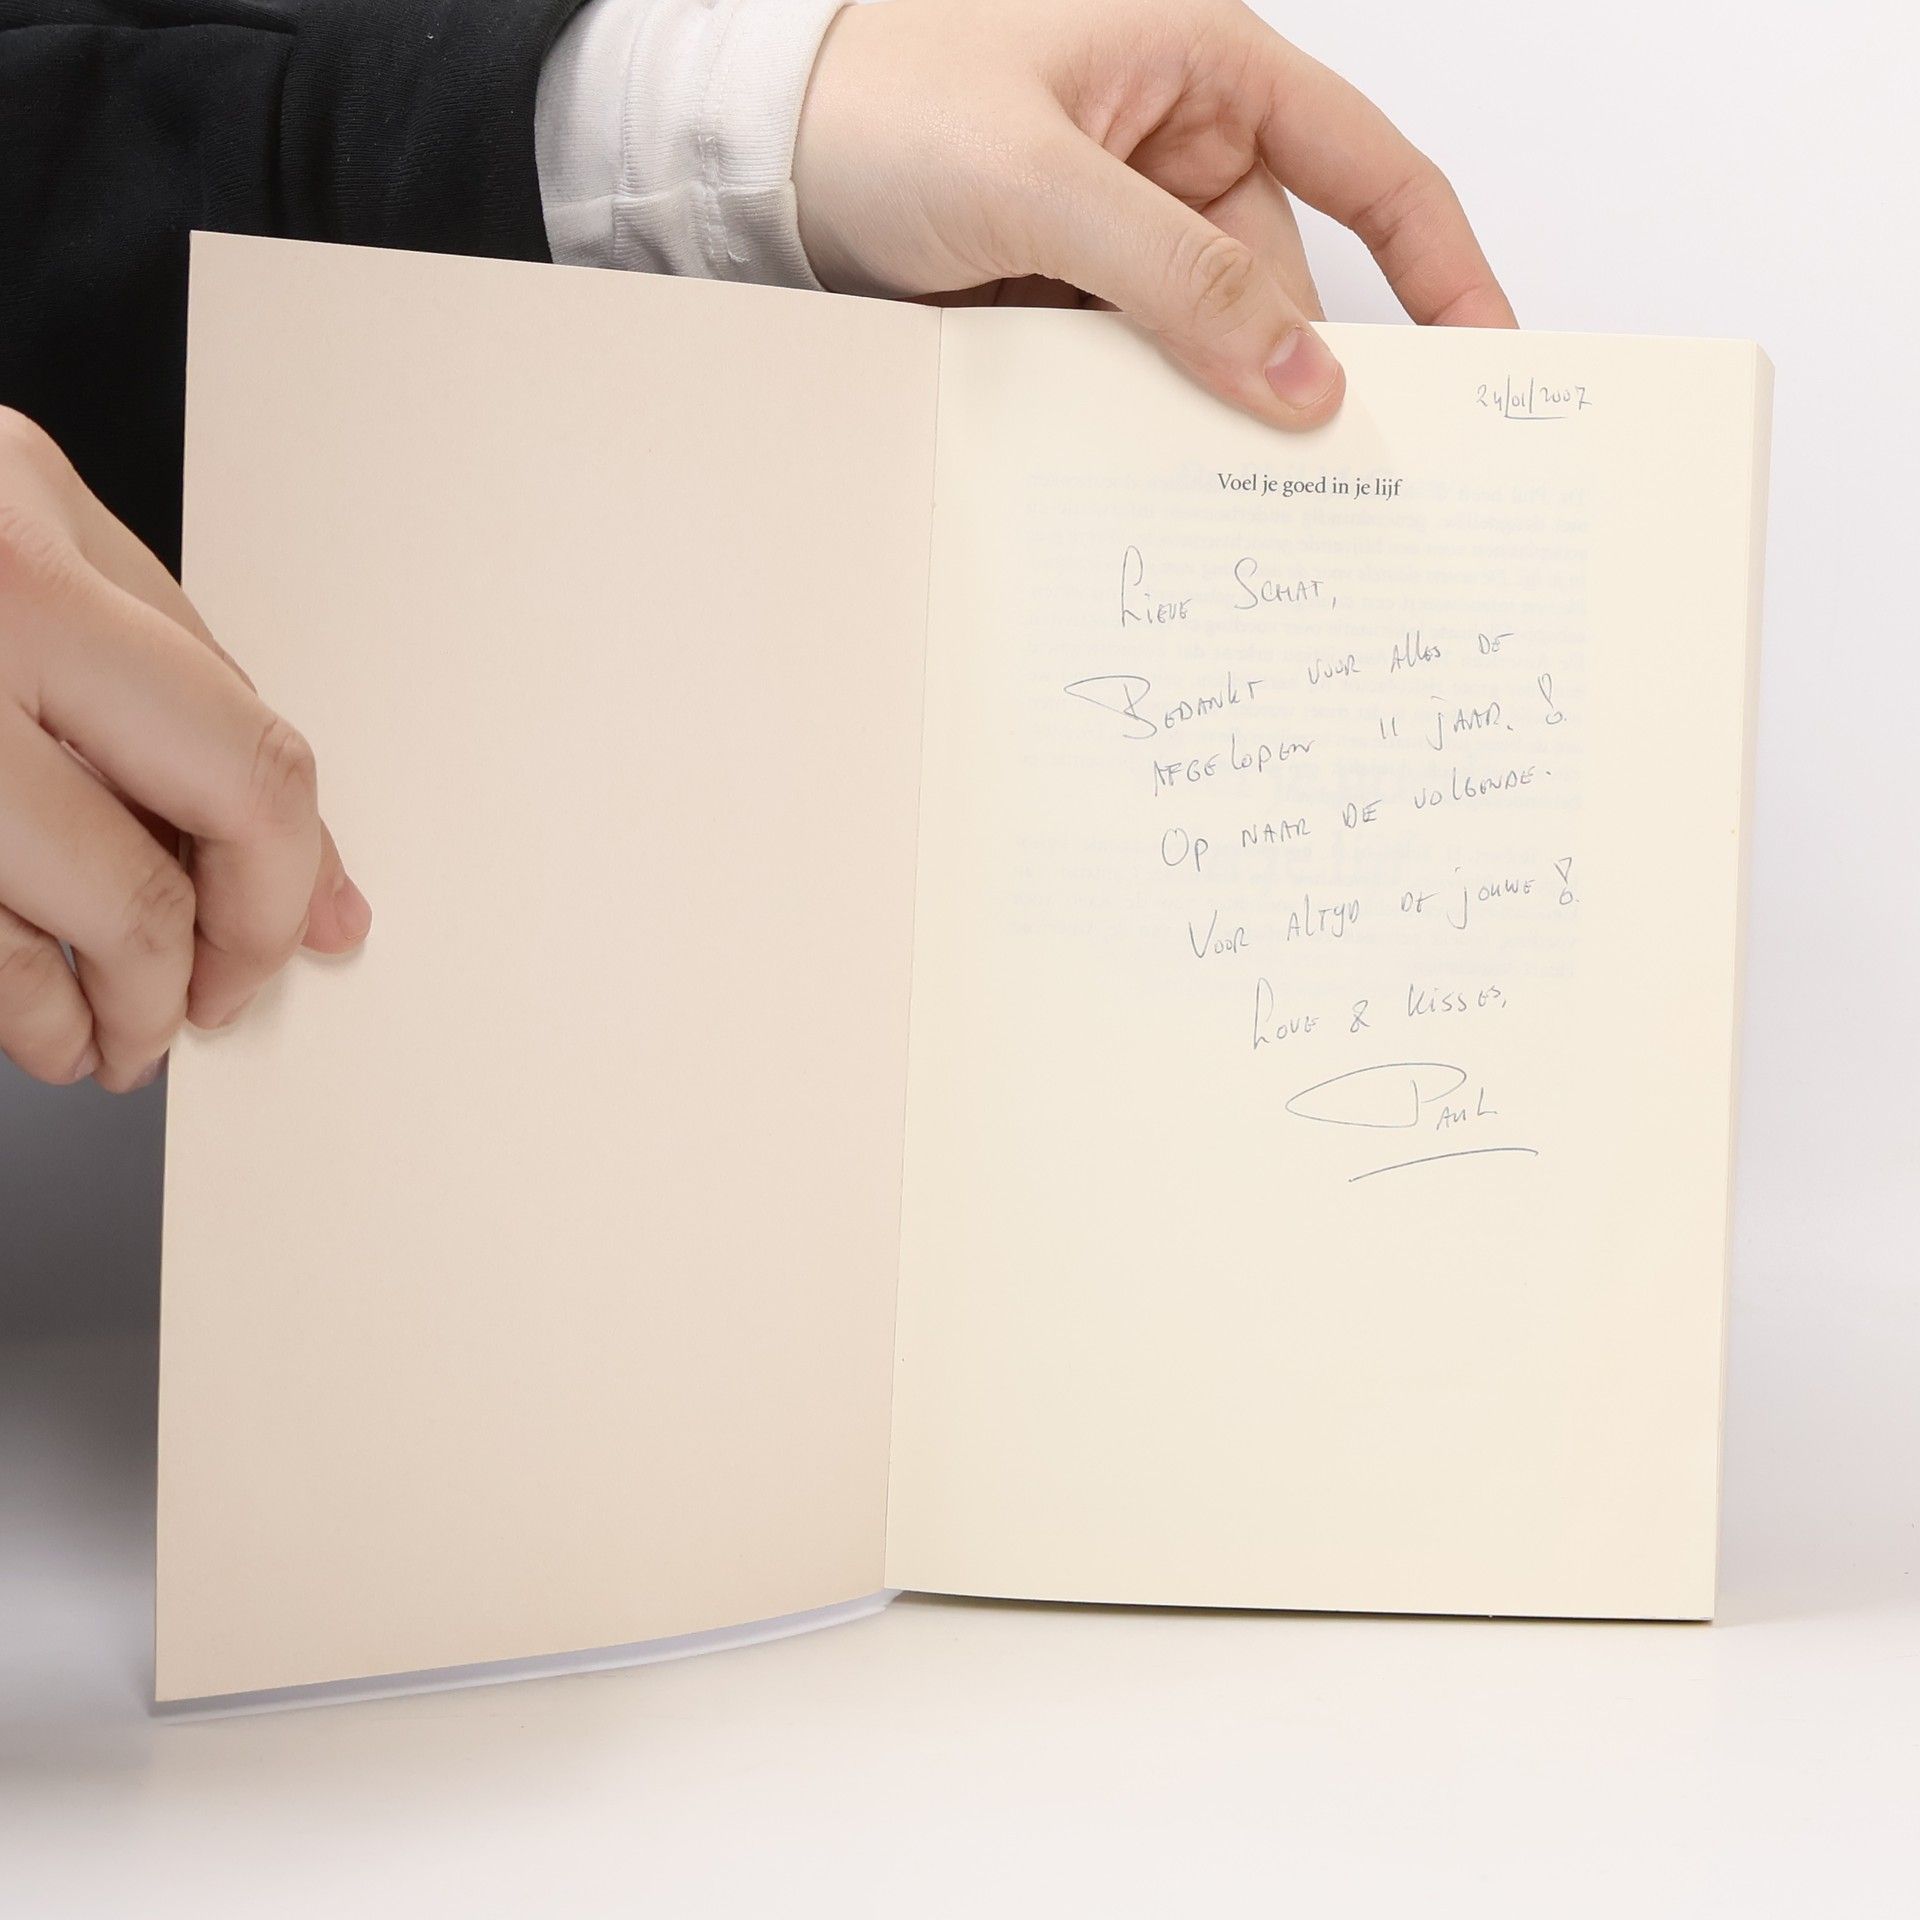 24/01/2007
Voel je goed in je lijf
Lieve Schat,
Bedankt voor alles de
afgelopen 11 jaar.!
Op naar de volgende.
Voor altijd de jouwe!
Love & kisses,
Paul